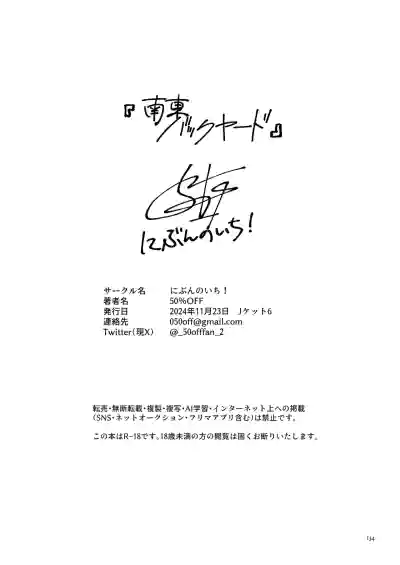 『南東バックヤード』
にぶんのいち!
サークル名 にぶんのいち!
著者名 50%OFF
発行日 2024年11月23日 Jケット6
連絡先 050off@gmail.com
Twitter(現X) @_50offfan_2
転売・無断転載・複製・複写・AI学習・インターネット上への掲載
(SNS・ネットオークション・フリマアプリ含む)は禁止です。
この本はR-18です。18歳未満の方の閲覧は固くお断りいたします。
134